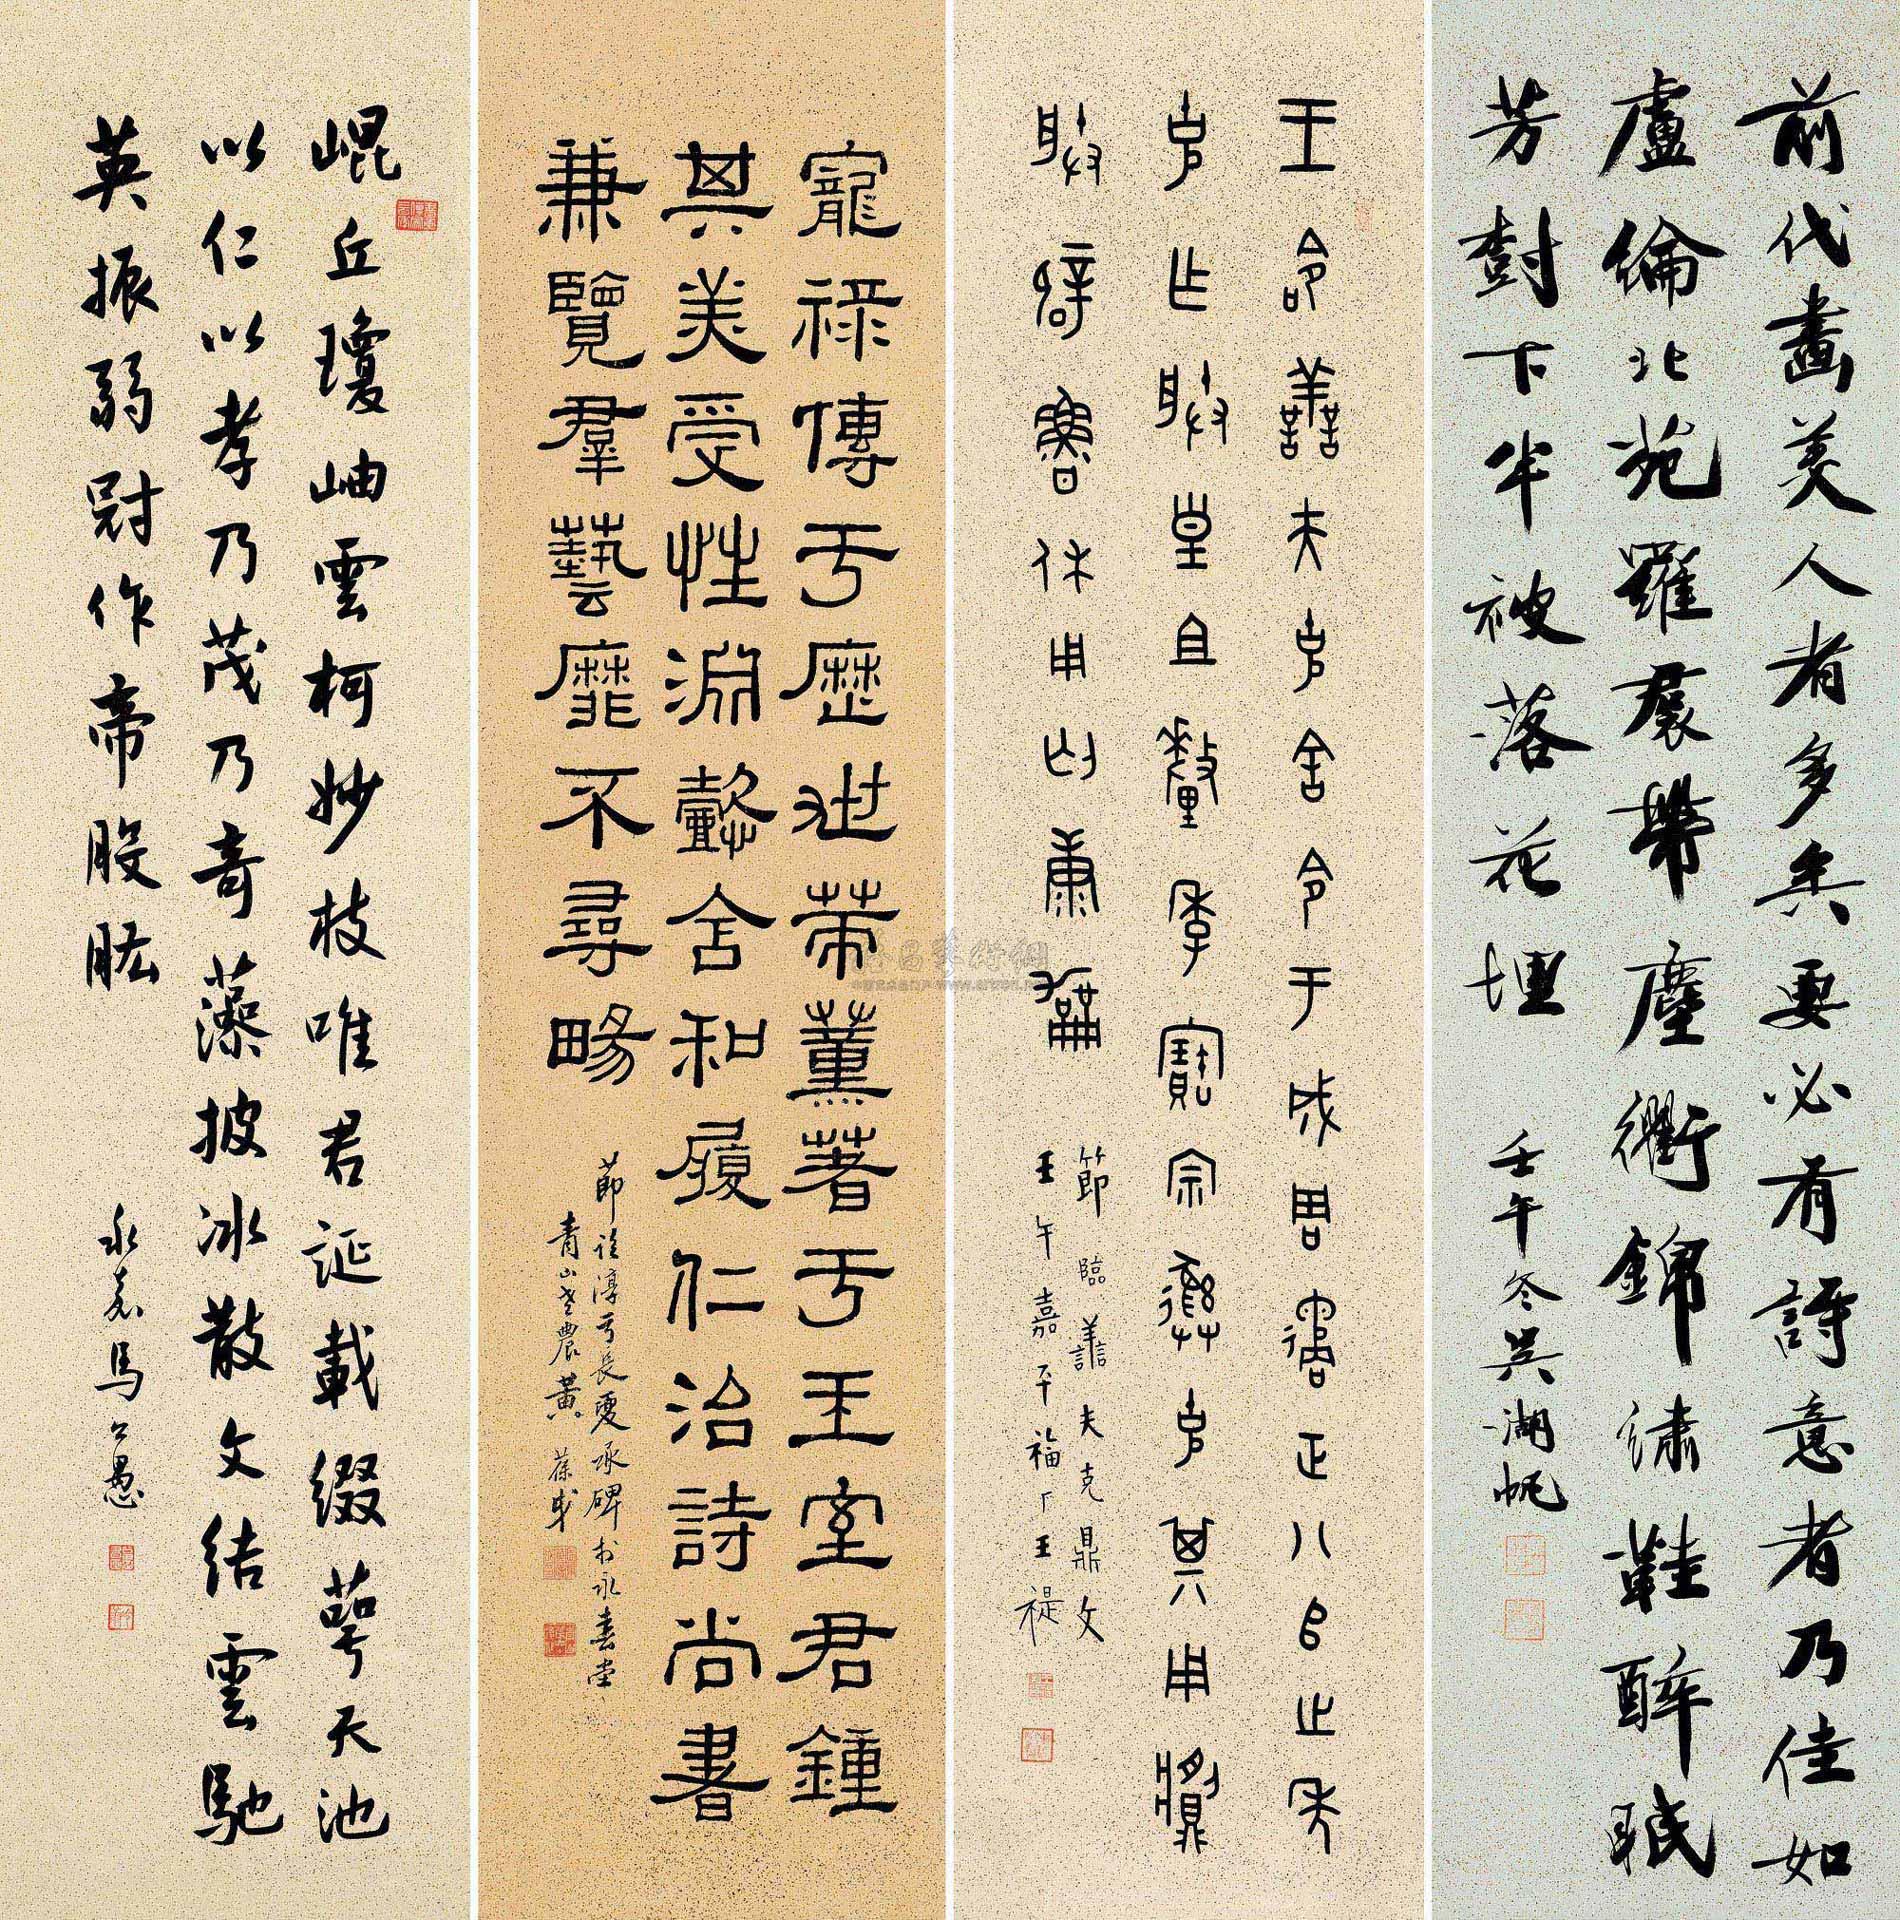 前代畫美人者多矣要必有詩意者乃佳如
盧倫北苑羅裙帶塵衢錦繡鞋醉眠
芳樹下半被落花埋
壬午冬吳湖帆
王命善夫克舍令于成周遹正八𠂤之年
克作朕皇且釐季寶宗彝克其用
朕辟魯休用匃康
節臨善夫克鼎文
壬午嘉平福厂王禔
寵祿傳于歷世策薰著于王室君鍾
其美受性淵懿含和履仁治詩尚書
兼覽群藝靡不尋暢
節臨淳于長夏承碑於永春堂
青山老農黃葆戉
崐丘瓊岫雲柯妙枝唯君誕載綴萼天池
以仁以孝乃茂乃奇藻披冰散文結雲馳
英振弱冠作帝股肱
永嘉馬公愚